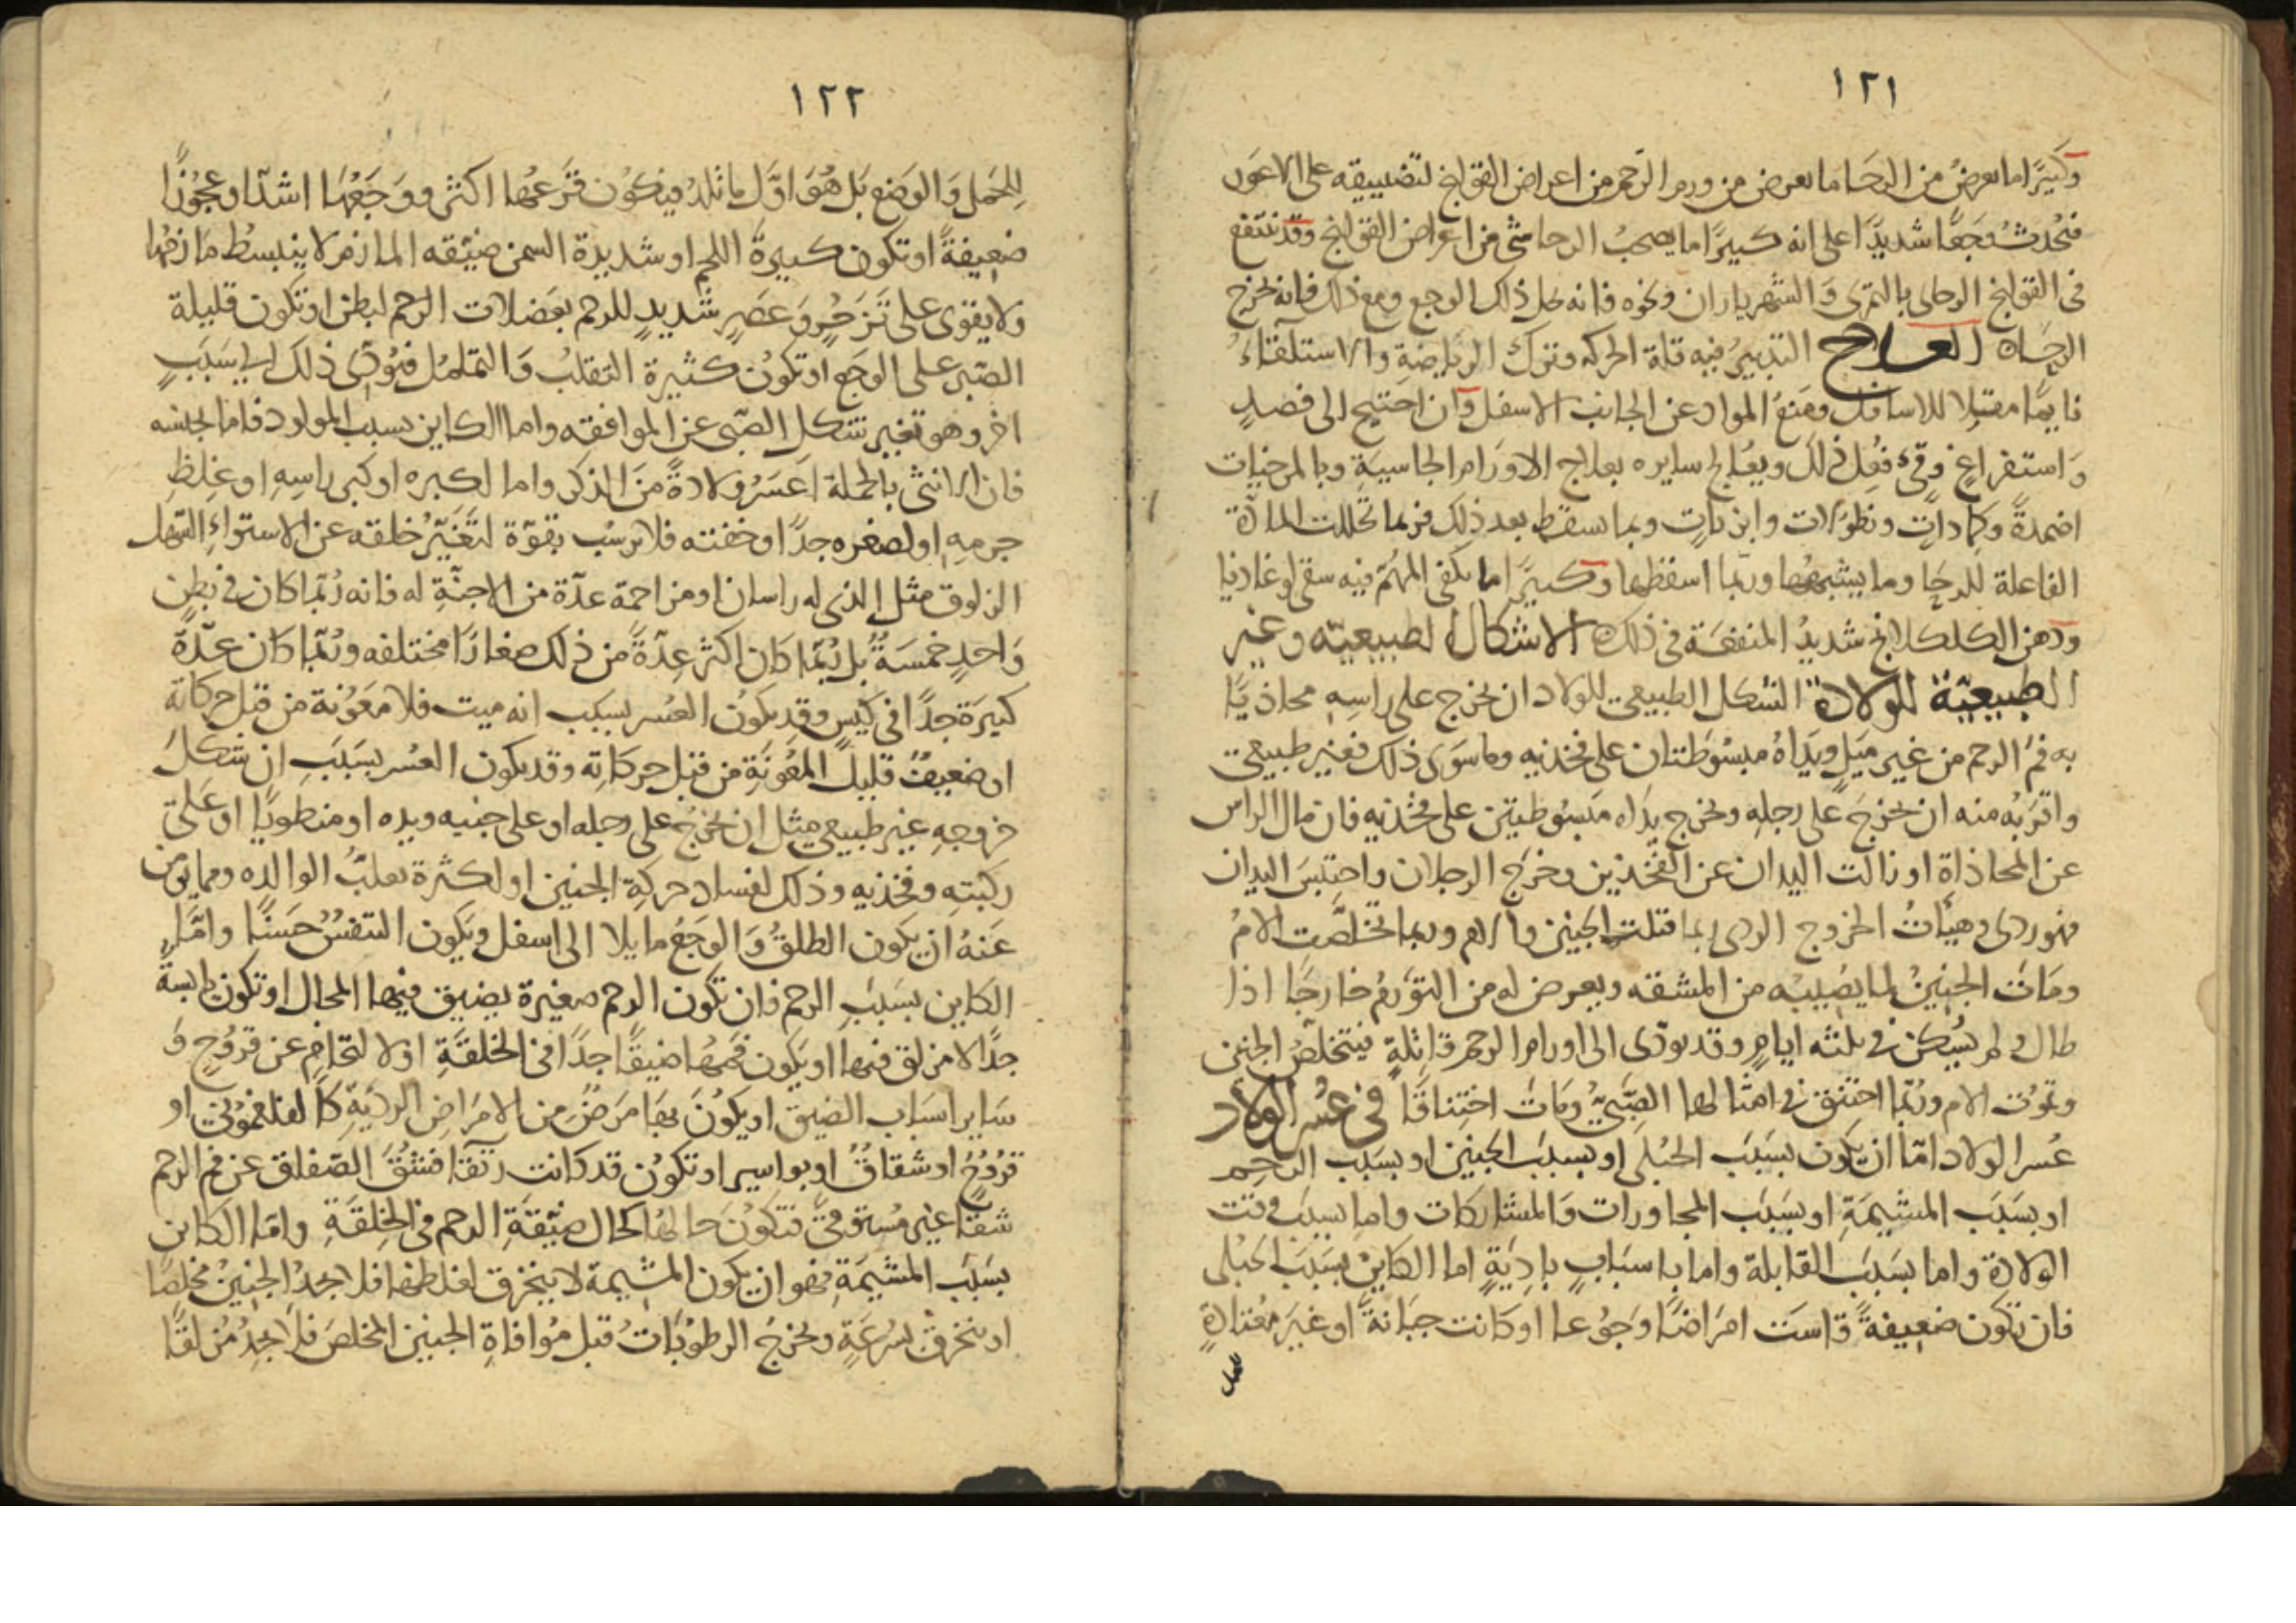 ١٢١
وكثيرا ما يعرض من الرحا ما يعرض من ورم الرحم من اعراض القولنج لتضييقه على الاعور
فتحدث وجعًا شديدًا على انه كثيرًا ما يصحب الرحا شئ من اعراض القولنج وقد ينتفع
فى القولنج الرحاى بالتمرى والشهرياران ونحوه فانه يحل ذلك الوجع ومع ذلك فانه يخرج
الرحاه العلاج التدبير فيه قلة الحركه وترك الرياضة والاستلقاء
نايمًا مقبلا للاسافل ومنع المواد عن الجانب الاسفل وان احتيج الى فصد
واستفراغ وقئ فعل ذلك ويعالج سايره بعلاج الاورام الجاسية وبالمرخيات
اضمدةً وكمادات ونطولات وابزنات وبما يسقط بعد ذلك فربما تحللت المادة
الفاعلة للرحا وما يشبهها وربما اسقطها وكثيرًا ما يكفى المهم فيه سقى لوغاديا
ودهن الكلكلانج شديد المنفعة فى ذلك الاشكال الطبيعيّه وغير
الطبيعيّة للولادة الشكل الطبيعى للولاد ان يخرج على راسه محاذيًا
به فم الرحم من غير ميل ويداه مبسوطتان على فخذيه وما سوى ذلك فغير طبيعى
واقربه منه ان يخرج على رجله ويخرج يداه مبسوطتين على فخذيه فان مال الراس
عن المحاذاة او زالت اليدان عن الفخذين وخرج الرجلان واحتبس اليدان
فهو ردى وهيئات الخروج الردى ربما قتلت الجنين والام وربما تخلصت الام
ومات الجنين لما يصيبه من المشقه ويعرض له من التورم خارجًا اذا
طال ولم يسكن فى ثلثه ايام وقد يودى الى اورام الرحم قاتلة فيتخلص الجنين
وتموت الام وربّما اختنق فى امثالها الصّبيّ ومات اختناقًا فى عسر الولاد
عُسر الولاد امّا ان يكون بسبب الحبلى او بسبب الجنين او بسبب الرحم
او بسبب المشيمة او بسبب المجاورات والمشاركات واما بسبب وقت
الولادة واما بسبب القابلة واما باسباب بادية اما الكاين بسبب الحبلى
فان تكون ضعيفةً قاست امراضًا وجوعا او كانت جبانةً او غير معتادةٍ
للحمل
١٢٢
للحمل والوضع بل هو اوّل ما تلد فيكون فزعها اكثر ووجعها اشدّ او عجوزًا
ضعيفةً او تكون كبيرة اللحم او شديدة السمن ضيّقه المازم لا ينبسط مازمها
ولا يقوى على تزحُّرٍ وعصرٍ شديدٍ للرحم بعضلات الرحم لبطن او تكون قليلة
الصّبر على الوجع او تكون كثيرة التقلب والتململ فيؤدّى ذلك الى سبب
اخر وهو تغير شكل الصّبى عن الموافقه واما الكاين بسبب المولود فاما لجنسه
فان الانثى بالجملة اعسر ولادةً من الذكر واما لكبره او كبر راسه او غلظ
جرمه او لصغره جدًا وخفته فلا يرسُب بقوّة لتغيّر خلقه عن الاستواء السّهل
الزلوق مثل الذى له راسان او مزاحمة عدّة من الاجنّة له فانه ربّما كان فى بطن
واحدٍ خمسةٌ بل ربّما كان اكثر عدّةً من ذلك صغارًا مختلفه وربّما كان عدّةً
كثيرة جدًا فى كيس وقد يكون العسر بسبب انه ميت فلا معونة من قبل حركاته
او ضعيفٌ قليل المعونة من قبل حركاته وقد يكون العسر بسبب ان شكل
خروجه غير طبيعى مثل ان يخرج على رجله او على جنبه ويده او منطويًا او على
ركبته وفخذيه وذلك لفساد حركة الجنين او لكثرة تقلب الوالده ومما يومن
عنه ان يكون الطلق والوجع مايلا الى اسفل ويكون التنفس حسنًا وامّا
الكاين بسبب الرحم فان تكون الرحم صغيرة يضيق فيها المجال او تكون يابسة
جدًا لا مزلق فيها او يكون فمها ضيقًا جدًا فى الخلقة اولا لتحامٍ عن قروحٍ و
ساير اسباب الضيق او يكون بها مرض من الامراض الرديّة كالفلغمونى او
قروح او شقاق او بواسير او تكون قد كانت رتقا فشق الصفاق عن فم الرحم
شقّا غير مستوفى فتكون حالها كحال ضيّقة الرحم فى الخلقة وامّا الكاين
بسبب المشيمة فهو ان يكون المشيمة لا ينخرق لغلظها فلا يجد الجنين مخلصًا
او ينخرق بسرعة ويخرج الرطوبات قبل موافاة الجنين المخلص فلا يجد مزلقًا